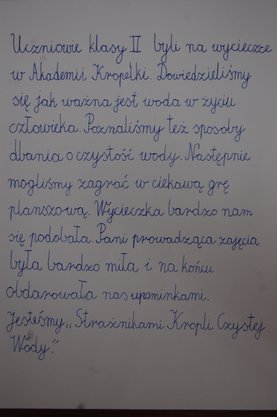 Uczniowie klasy II byli na wycieczce
w Akademii Kropelki. Dowiedzieliśmy
się jak ważna jest woda w życiu
człowieka. Poznaliśmy też sposoby
dbania o czystość wody. Następnie
mogliśmy zagrać w ciekawą grę
planszową. Wycieczka bardzo nam
się podobała. Pani prowadząca zajęcia
była bardzo miła i na końcu
obdarowała nas upominkami.
Jesteśmy „Strażnikami Kropli Czystej
Wody."